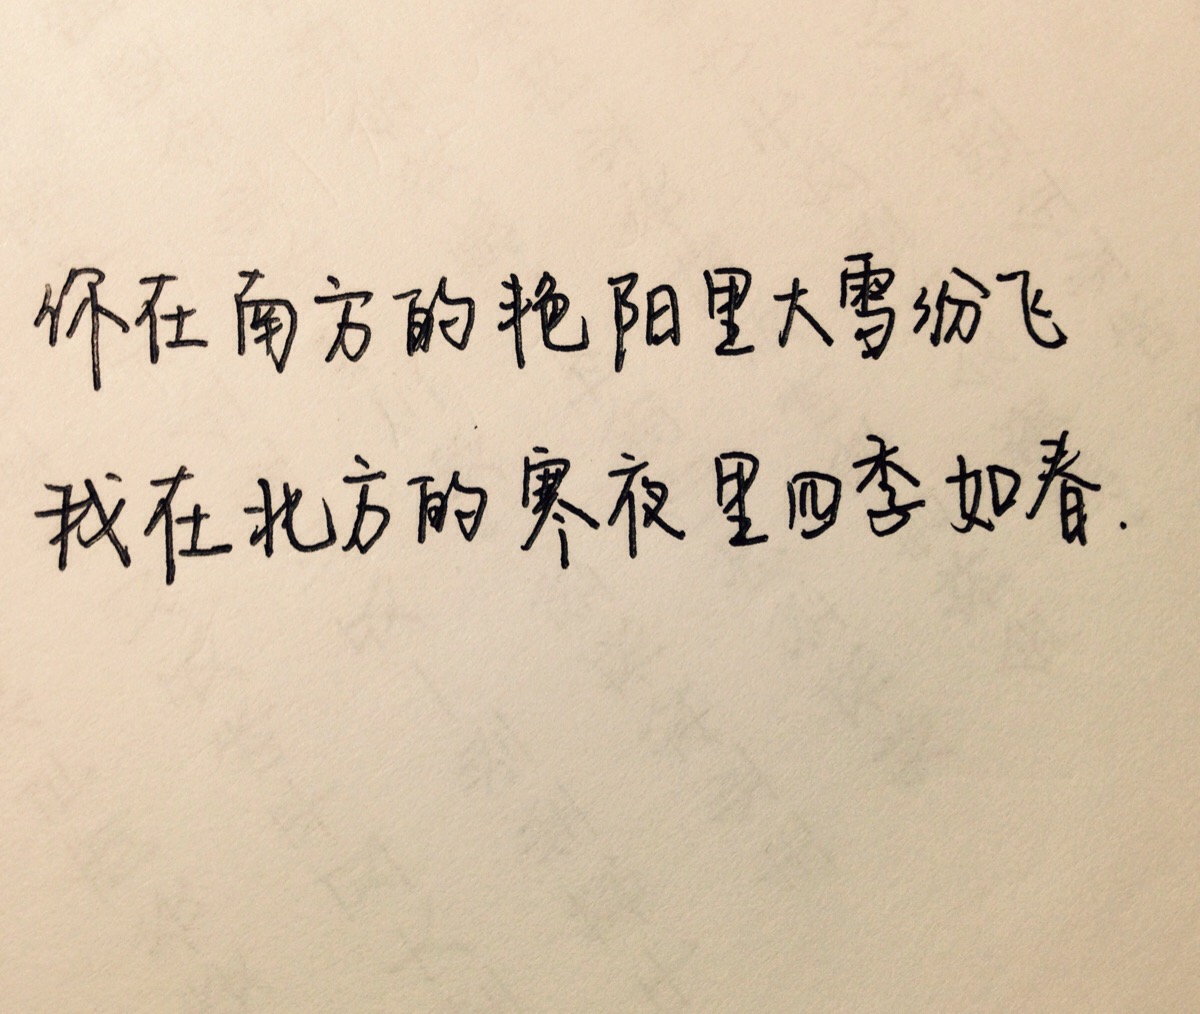 你在南方的艳阳里大雪纷飞
我在北方的寒夜里四季如春.